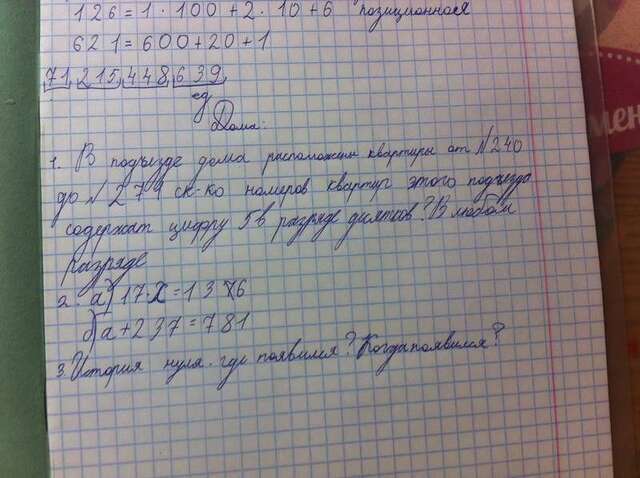 126 = 1 · 100 + 2 · 10 + 6 позиционная
621 = 600 + 20 + 1
71 215 448 639
ед
Дома:
1. В подъезде дома расположены квартиры от №240
до №279 ск-ко номеров квартир этого подъезда
содержат цифру 5 в разряде десятков? В любом
разряде
2. а) 17·x = 1376
б) а + 237 = 781
3. История нуля. где появился? Когда появился?
мен